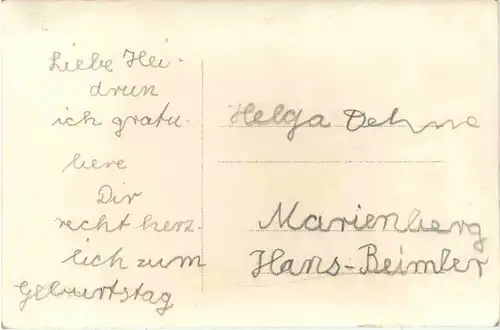 Liebe Hei-
drun
ich gratu-
liere
Dir
recht herz-
lich zum
Geburtstag
Helga Oehme
Marienberg
Hans-Beimler